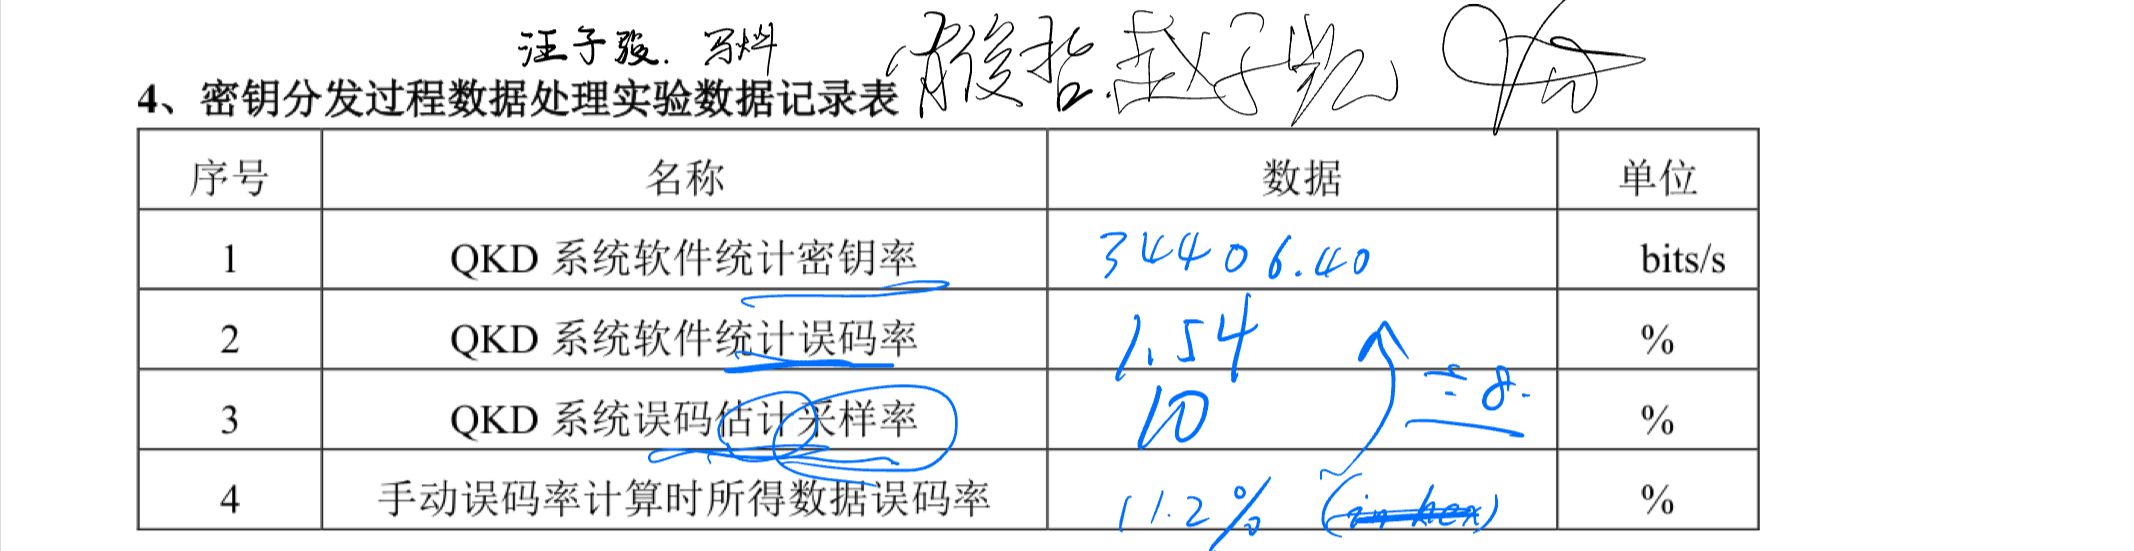 汪子骏. 马烨
4、密钥分发过程数据处理实验数据记录表
序号 名称 数据 单位
1 QKD 系统软件统计密钥率 34406.40 bits/s
2 QKD 系统软件统计误码率 1.54 %
3 QKD 系统误码估计采样率 10 ÷ 8. %
4 手动误码率计算时所得数据误码率 11.2% (in hex) %